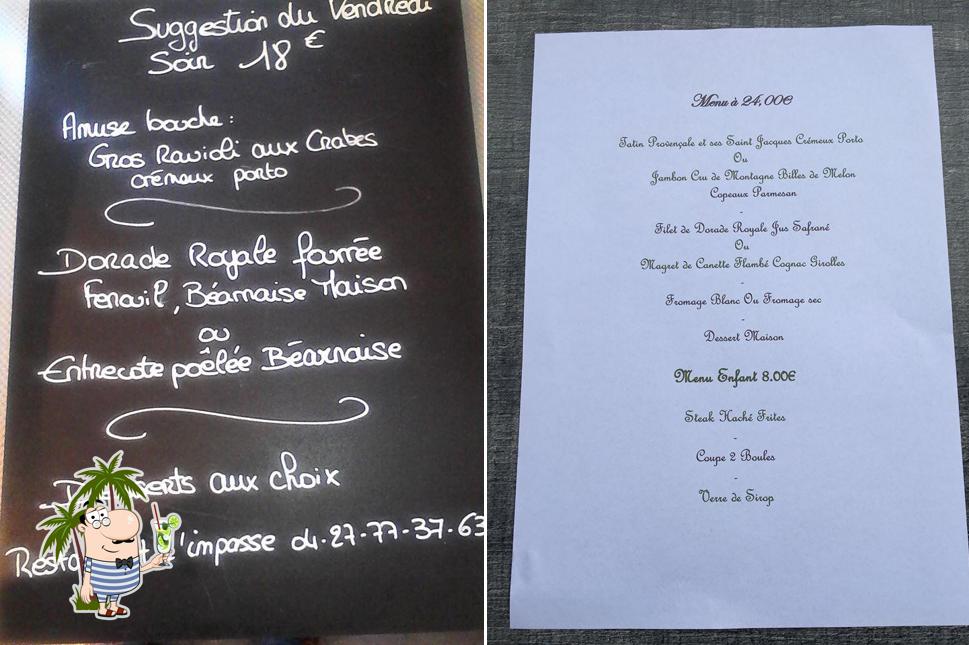 Suggestion du Vendredi
Soir 18 €
Amuse bouche :
Gros Ravioli aux Crabes
crémeux porto
Dorade Royale fourrée
Fenouil, Béarnaise Maison
ou
Entrecote poêlée Béarnaise
aux choix
l'impasse 04-27-77-37-63
Menu à 24,00€
Tatin Provençale et ses Saint Jacques Crémeux Porto
Ou
Jambon Cru de Montagne Billes de Melon
Copeaux Parmesan
-
Filet de Dorade Royale Jus Safrané
Ou
Magret de Canette Flambé Cognac Girolles
-
Fromage Blanc Ou Fromage sec
-
Dessert Maison
Menu Enfant 8.00€
Steak Haché Frites
-
Coupe 2 Boules
-
Verre de Sirop